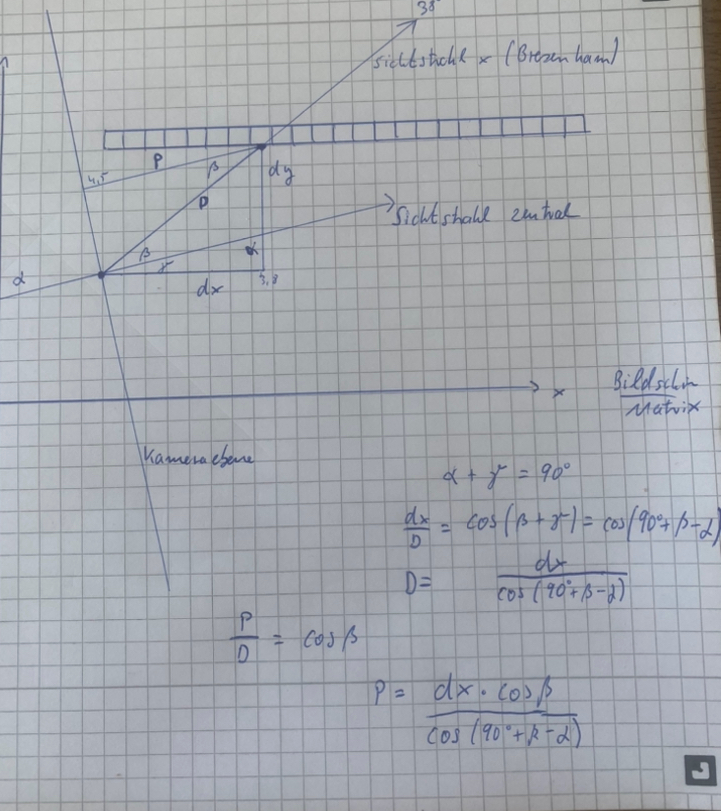 38°
Sichtstrahl x (Bresenham)
P
β
dy
4,5
D
Sichtstrahl zentral
β
α
γ
α
3,8
dx
x
Bildschirm
Matrix
Kameraebene
α + γ = 90°
dx/D = cos(β + γ) = cos(90° + β - α)
D = dx / cos(90° + β - α)
P/D = cos β
P = dx · cos β / cos(90° + β - α)